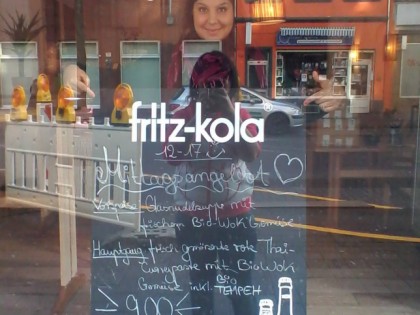 fritz-kola
12-17
Mittagsangebot
Vorspeise Glasnudelsuppe mit
frischem Bio-Wok Gemüse
Hauptgang frisch gemörserte rote Thai-
Currypaste mit Bio Wok
Gemüse inkl. BIO
TEMPEH
9,00